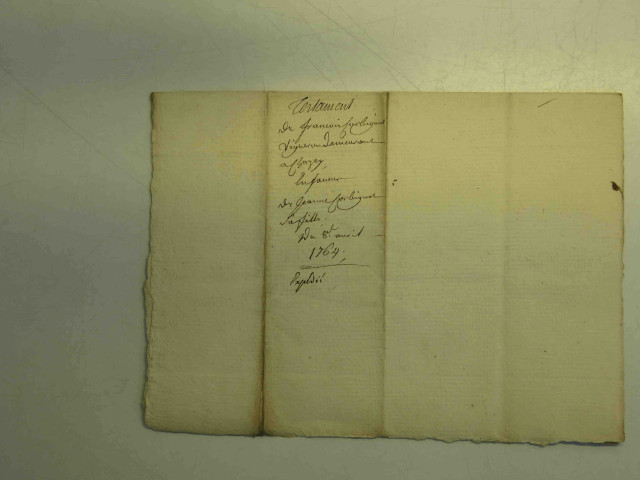 Testament
De François
Vigneron Demeurant
a Chazey
En faveur
De Jeanne
Sa fille
Du 8e. aoust
1764.
Expédié